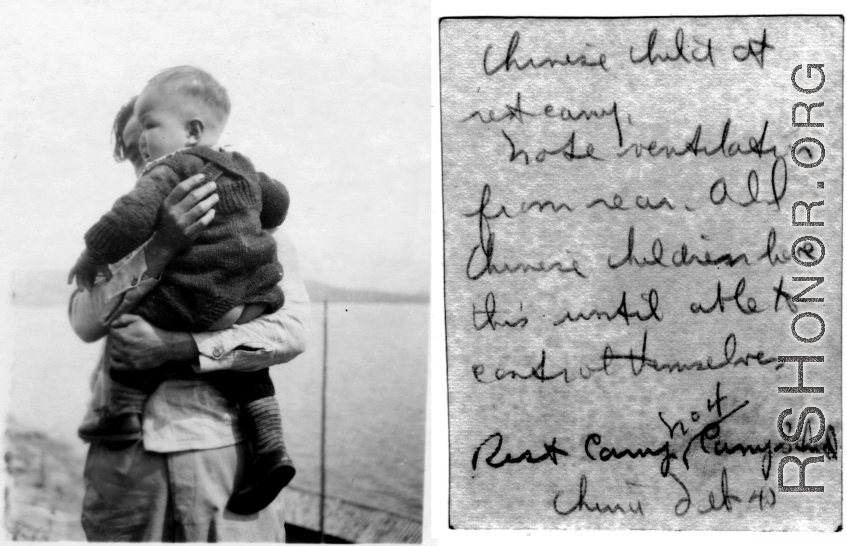 Chinese child at
rest camp.
Note ventilation
from rear. All
Chinese children have
this until able to
control themselves
not
Rest Camp,
China Feb 45
RSHONOR.ORG